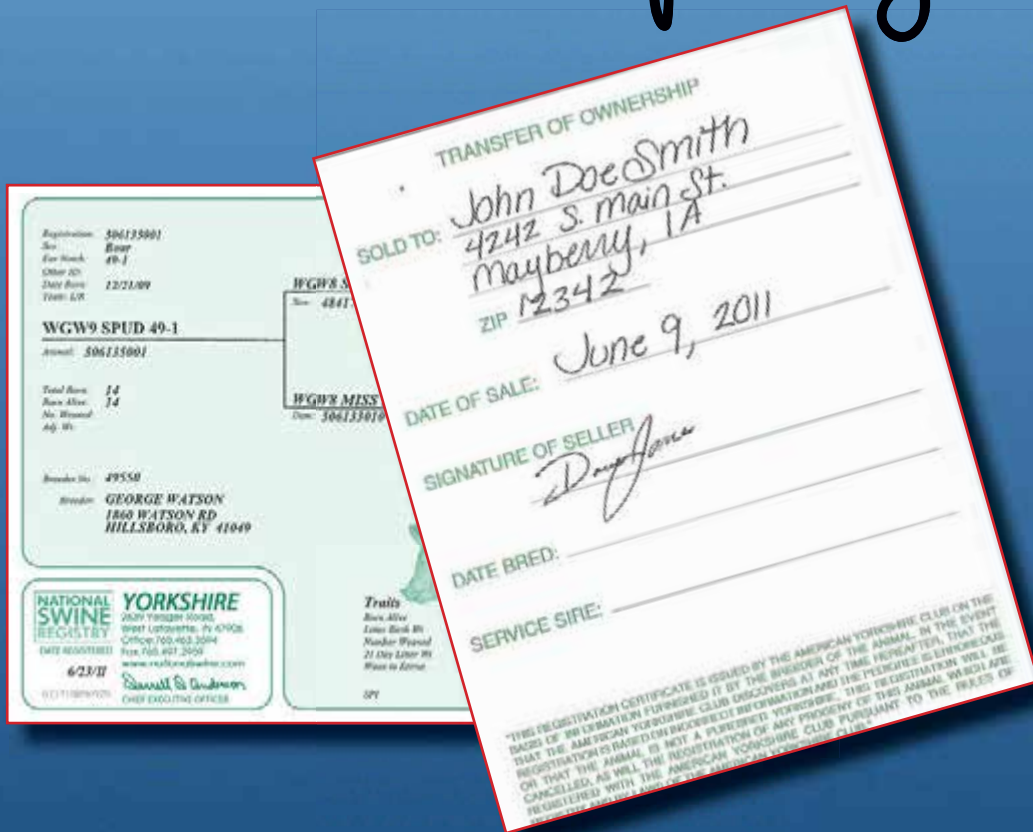 Registration: 506135001
Sex: Boar
Ear Notch: 49-1
Other ID:
Date Born: 12/21/09
WGW9 SPUD 49-1
Animal: 506135001
Total Born: 14
Born Alive: 14
No. Weaned:
Adj. Wt.
Breeder No: 49550
Breeder: GEORGE WATSON
1860 WATSON RD
HILLSBORO, KY 41049
WGW8
Sire: 4841
WGW8 MISS
Dam:
NATIONAL
SWINE
REGISTRY
DATE REGISTERED
6/23/11
YORKSHIRE
2639 Yeager Road,
West Lafayette, IN 47906
Office:765.463.3594
Fax:765.497.2959
www.nationalswine.com
CHIEF EXECUTIVE OFFICER
Traits
Born Alive
Number Weaned
21 Day Litter Wt
SPI
TRANSFER OF OWNERSHIP
SOLD TO: John Doe Smith
4242 S. Main St.
Mayberry, IA
ZIP 12342
DATE OF SALE: June 9, 2011
SIGNATURE OF SELLER
DATE BRED:
SERVICE SIRE:
"THIS REGISTRATION CERTIFICATE IS ISSUED BY THE AMERICAN YORKSHIRE CLUB ON THE
BASIS OF INFORMATION FURNISHED IT BY THE BREEDER OF THE ANIMAL. IN THE EVENT
THAT THE AMERICAN YORKSHIRE CLUB DISCOVERS AT ANY TIME HEREAFTER, THAT THE
REGISTRATION IS BASED ON INCORRECT INFORMATION AND THE PEDIGREE IS ERRONEOUS
OR THAT THE ANIMAL IS NOT A PUREBRED YORKSHIRE, THIS REGISTRATION WILL BE
CANCELLED, AS WILL THE REGISTRATION OF ANY PROGENY OF THIS ANIMAL WHICH ARE
REGISTERED WITH THE AMERICAN YORKSHIRE CLUB PURSUANT TO THE RULES OF